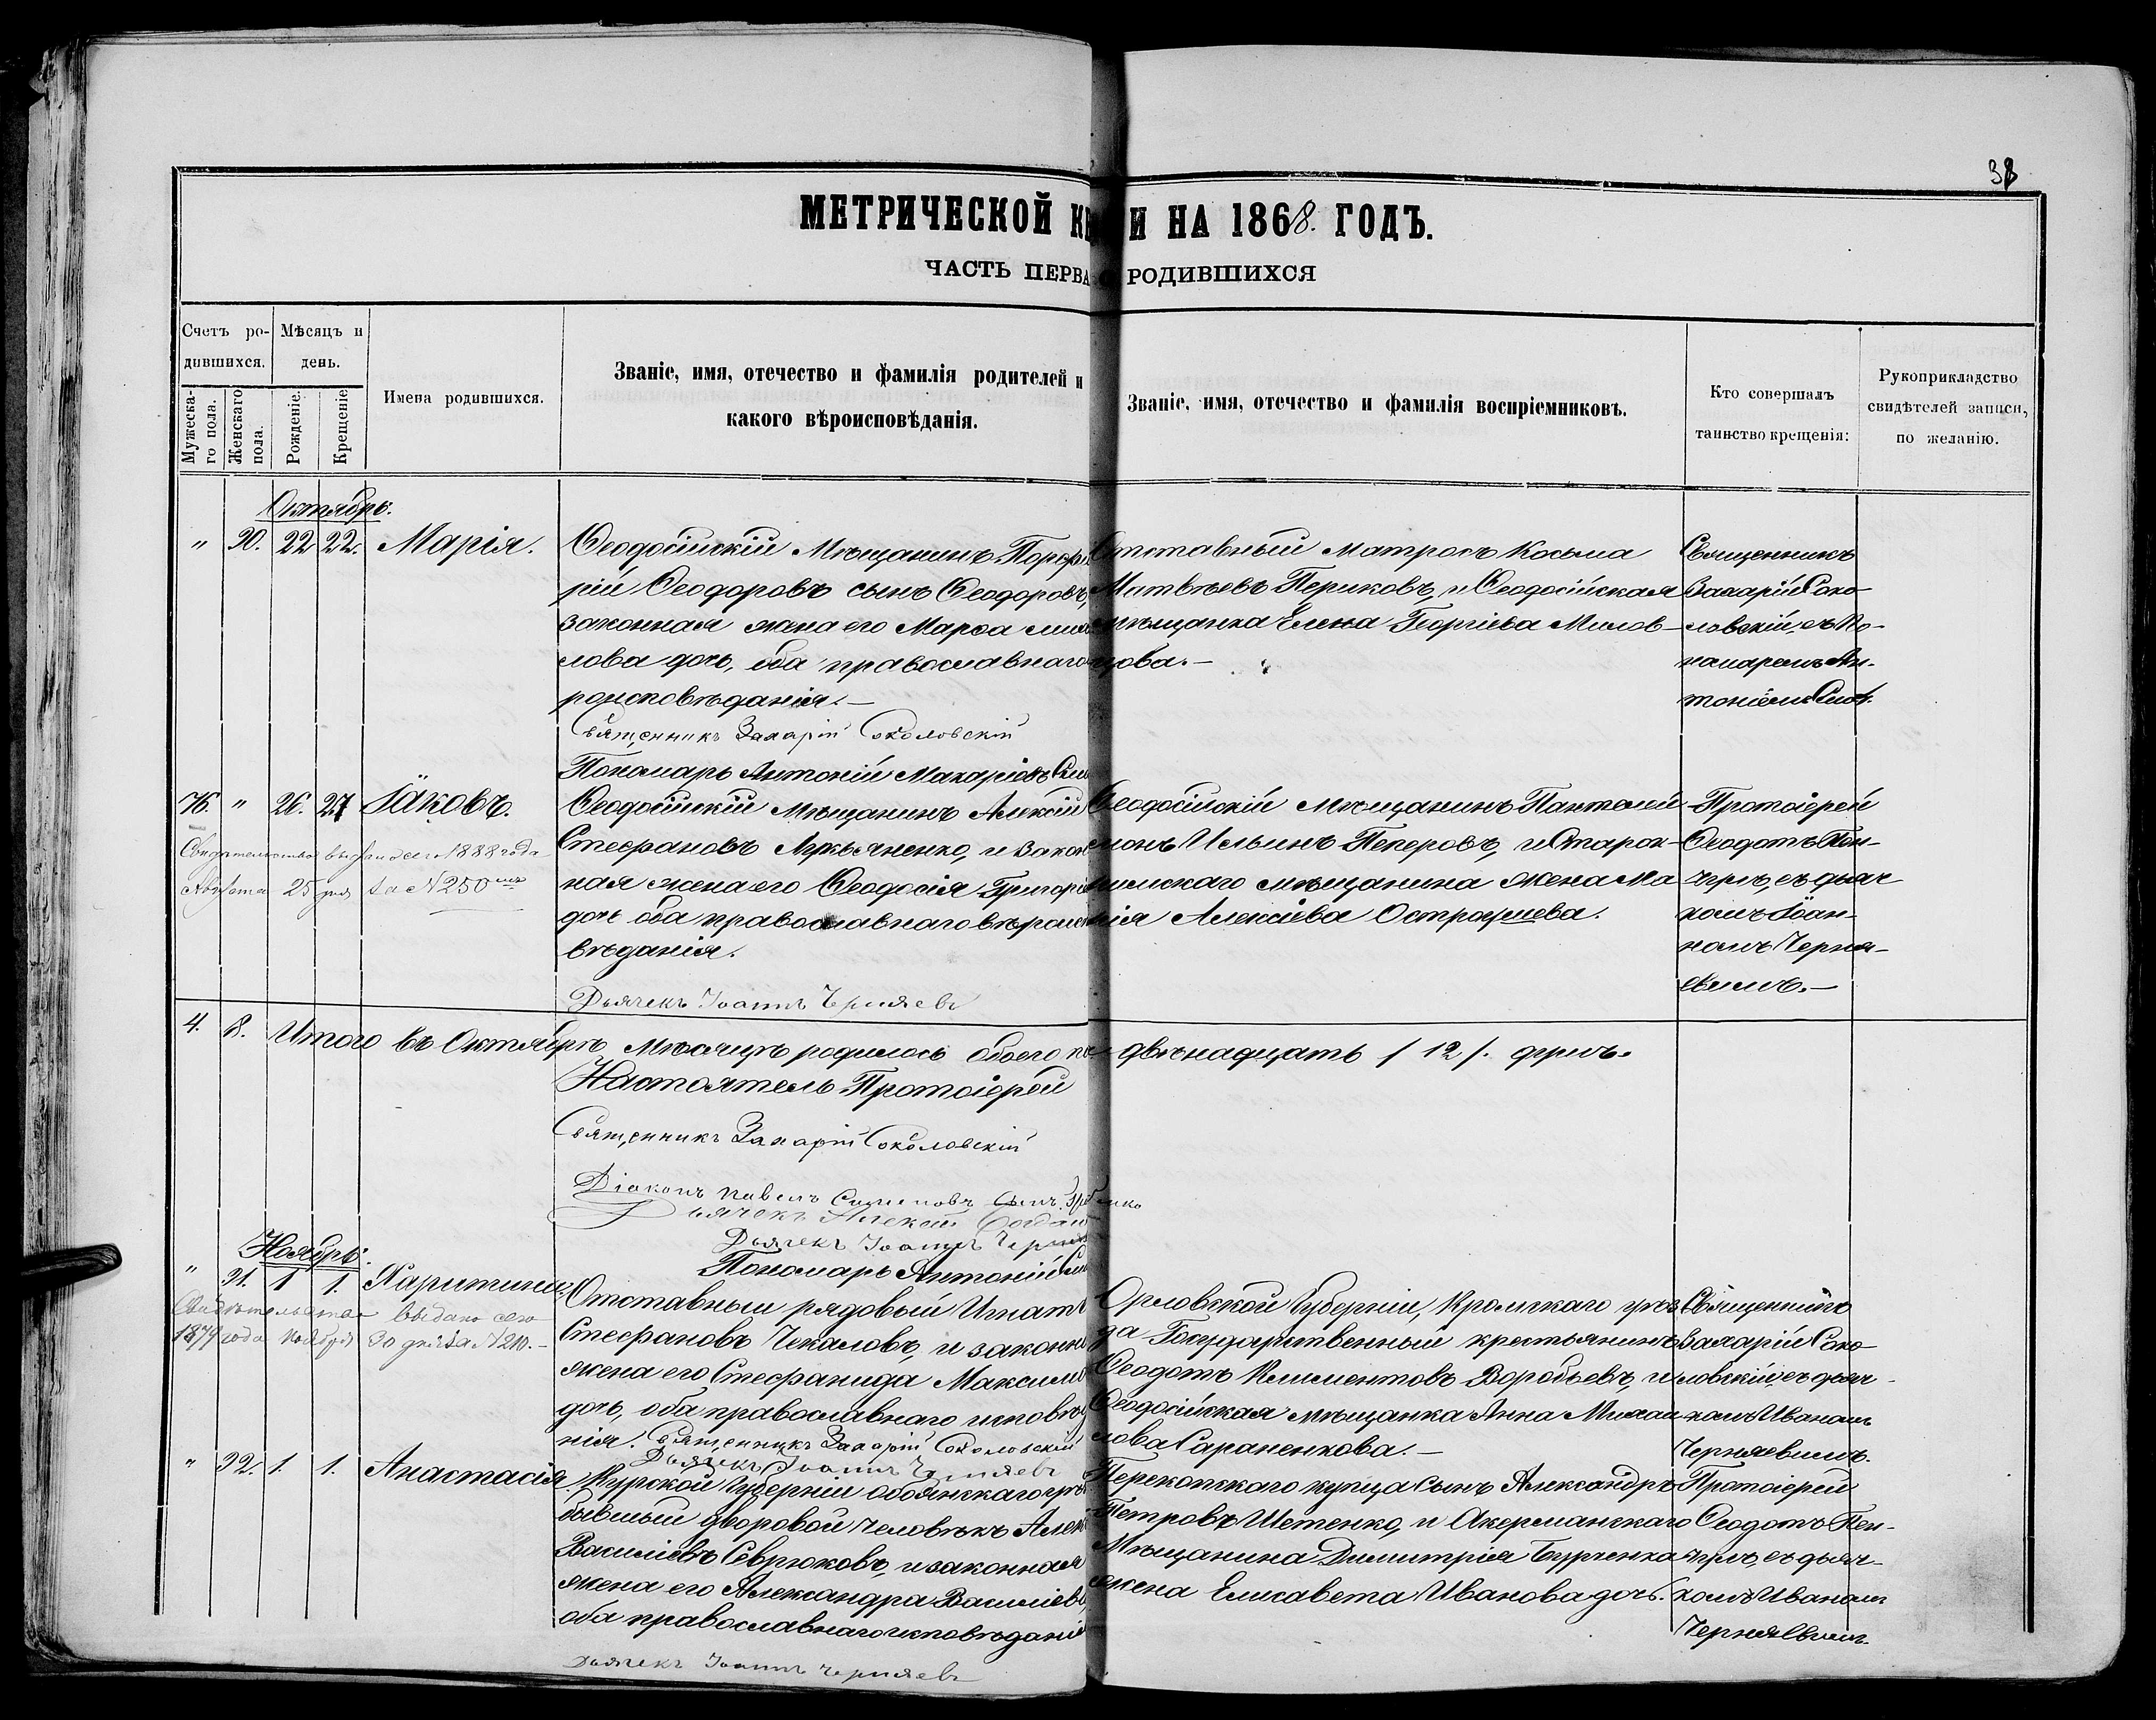 38
МЕТРИЧЕСКОЙ КНИ И НА 1868. ГОДЪ.
ЧАСТЬ ПЕРВА РОДИВШИХСЯ
Счетъ ро-
дившихся.
Мѣсяцъ и
день.
Мужеска-
го пола.
Женскаго
пола.
Рожденіе.
Крещеніе
Имена родившихся.
Званіе, имя, отечество и фамилія родителей и
какого вѣроисповѣданія.
Званіе, имя, отечество и фамилія воспріемниковъ.
Кто совершалъ
таинство крещенія:
Рукоприкладство
свидѣтелей записи,
по желанію.
Октябрь.
" 30. 22 22. Марія.
Ѳеодосійскій Мѣщанинъ Порфи
рій Ѳеодоровъ сынъ Ѳеодоровъ,
законная жена его Марѳа
лова дочь, оба православнаго
роисповѣданія.—
Священникъ Захарій Соколовскій
Пономарь Антоній Макаріевъ
Отставный матросъ Косьма
Матвѣевъ Периковъ, и Ѳеодосійская
мѣщанка Елена Георгіева Милов-
цова.—
Священникъ
Захарій Соко-
ловскій, съ По-
номаремъ Ан-
тоніемъ
46. " 26. 27 Іаковъ.
Свидетельство выдано сего 1888 года
Августа 25 дня за № 250
Ѳеодосійскій Мѣщанинъ Алексій
Стефановъ Лукьяненко, и закон
ная жена его Ѳеодосія Григорі
дочь оба православнаго вѣроис
вѣданія.
Дьячекъ Іоаннъ Черняевъ
Ѳеодосійскій Мѣщанинъ Пантелей-
монъ Ильинъ Пеперовъ, и Старок-
рымскаго мѣщанина жена Ма
рія Алексіева Остроушева.
Протоіерей
Ѳеодотъ Кон-
чръ, съ дьяч
комъ Іоан-
номъ Черня-
евымъ.—
4. 8. Итого въ Октябрѣ мѣсяцѣ родилось обоего по двѣнадцать /12/. душъ.
Настоятель Протоіерей
Священникъ Захарій Соколовскій
Діаконъ Павелъ
Дьячекъ Алексій
Дьячекъ Іоаннъ Черняевъ
Пономарь Антоній
Ноябрь.
" 31. 1 1. Харитина.
Свидѣтельство выдано сего
1879 года ноября 30 дня за № 210.—
Отставный рядовый Игнатъ
Стефановъ Чекаловъ, и законна
жена его Стефанида Максимо
дочь, оба православнаго исповѣд
нія. Священникъ Захарій Соколовскій
Дьячекъ Іоаннъ Черняевъ
Орловской Губерніи, Кромскаго уѣз
да Государственный крестьянинъ
Ѳеодотъ Климентовъ Воробьевъ, и
Ѳеодосійская мѣщанка Анна Михаи
лова Сараненкова.—
Священникъ
Захарій Соко-
ловскій, съ дьяч-
комъ Иваномъ
Черняевымъ.
" 32. 1. 1. Анастасія.
Курской Губерніи обоянскаго уѣз
бывшый дворовой человѣкъ Алек
Василіевъ Севрюковъ, и законная
жена его Александра Василіев
оба православнаго исповѣданія
Дьячекъ Іоаннъ Черняевъ
Перекопскаго купца сынъ Александръ
Петровъ Шетенко, и Акерманскаго
Мѣщанина Димитрія Бурченка
жена Елисавета Иванова дочь.
Протоіерей
Ѳеодотъ Кон-
чръ, съ дьяч-
комъ Иваномъ
Черняевымъ.